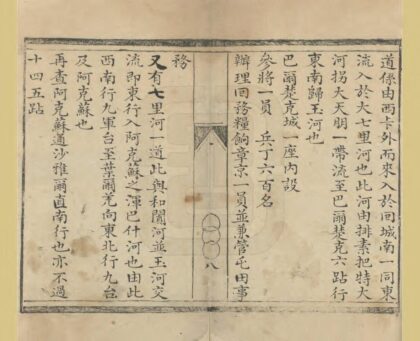 道係由西卡外而來入於回城南一同東
流入於大七里河也此河由排素把特大
河拐大天朋一帶流至巴爾楚克六跕行
東南歸玉河也
巴爾楚克城一座內設
參將一員 兵丁六百名
辦理回務糧餉章京一員並兼管屯田事
務
八
又有七里河一道此與和闐河並玉河交
流即東行入阿克蘇之渾巴什河也由此
西南行九軍台至葉爾羌向東北行九台
及阿克蘇也
再查阿克蘇通沙雅爾直南行也亦不過
十四五跕